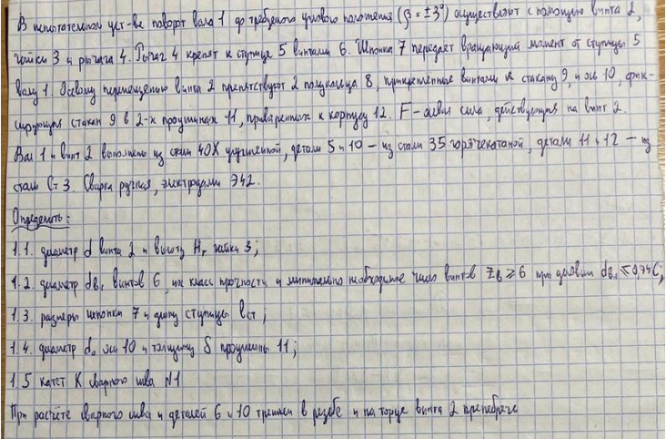 В испытательном уст-ве поворот вала 1 до требуемого углового положения (β = ±3°) осуществляют с помощью винта 2,
гайки 3 и рычага 4. Рычаг 4 крепят к ступице 5 винтами 6. Шпонка 7 передаёт вращающий момент от ступицы 5
валу 1. Осевому перемещению винта 2 препятствуют 2 полукольца 8, прикреплённые винтами к стакану 9, и оси 10, фик-
сирующая стакан 9 в 2-х проушинах 11, приваренных к корпусу 12. F - осевая сила, действующая на винт 2.
Вал 1 и винт 2 выполнены из стали 40Х улучшенной, детали 5 и 10 - из стали 35 горячекатаной, детали 11 и 12 - из
стали Ст 3. Сварка ручная, электродами Э42.
Определить:
1.1. диаметр d винта 2 и высоту Hг гайки 3;
1.2. диаметр dв винтов 6, их класс прочности и минимально необходимое число винтов Zв ≥ 6 при условии
1.3. размеры шпонки 7 и длину ступицы lст;
1.4. диаметр d₀ оси 10 и толщину δ проушины 11;
1.5 катет K сварного шва N1
При расчёте сварного шва и деталей 6 и 10 трением в резьбе и на торце винта 2 пренебречь